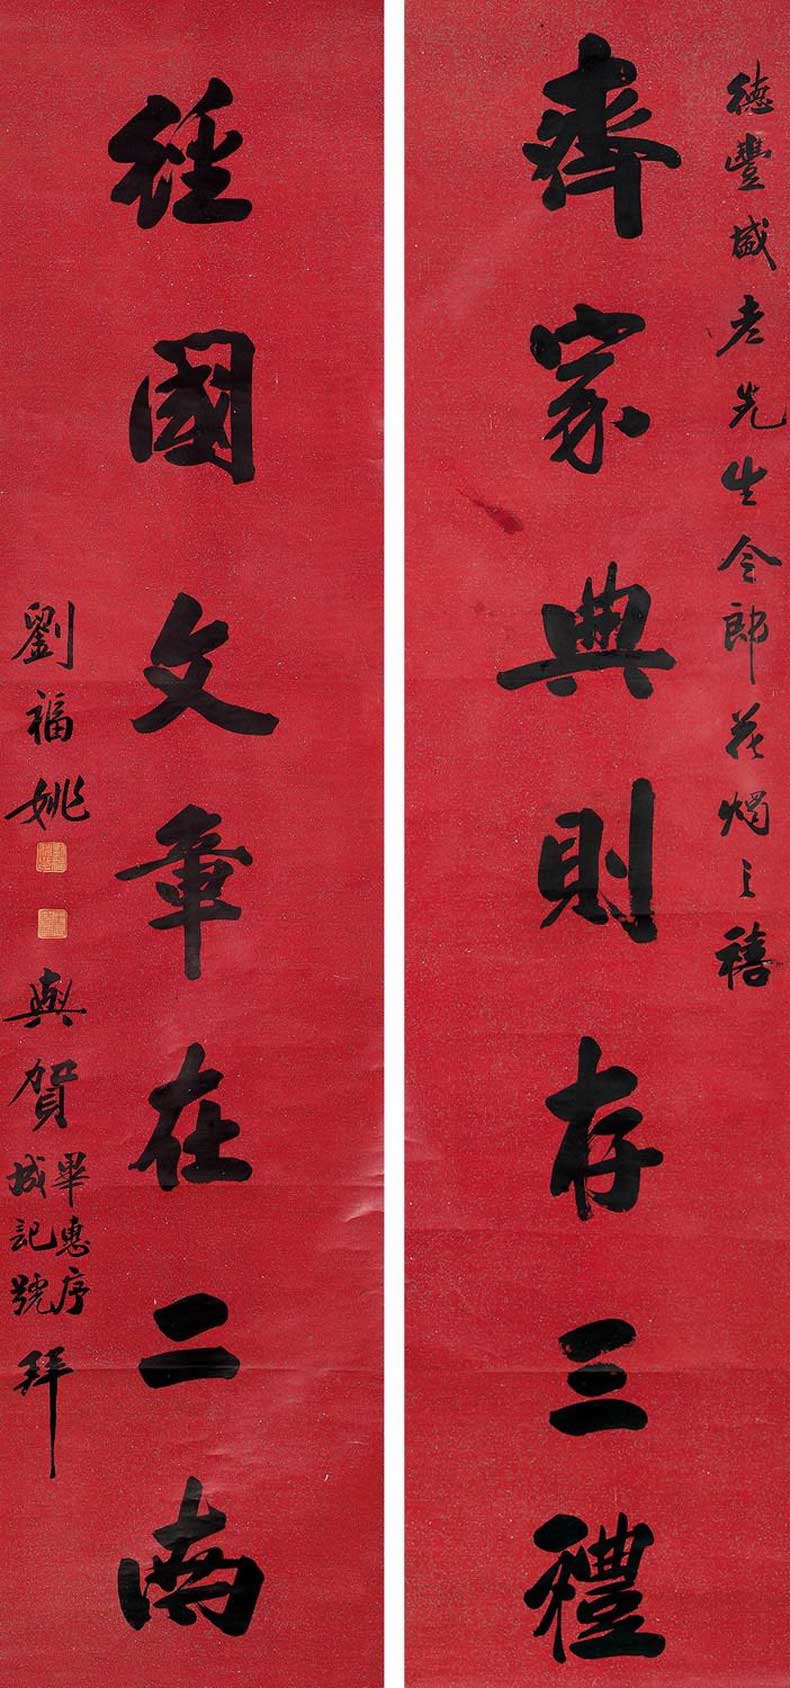 德豐盛老先生令郎花燭之禧
齊家典則存三禮
經國文章在二南
劉福姚
與賀
畢惠序
城記號
拜